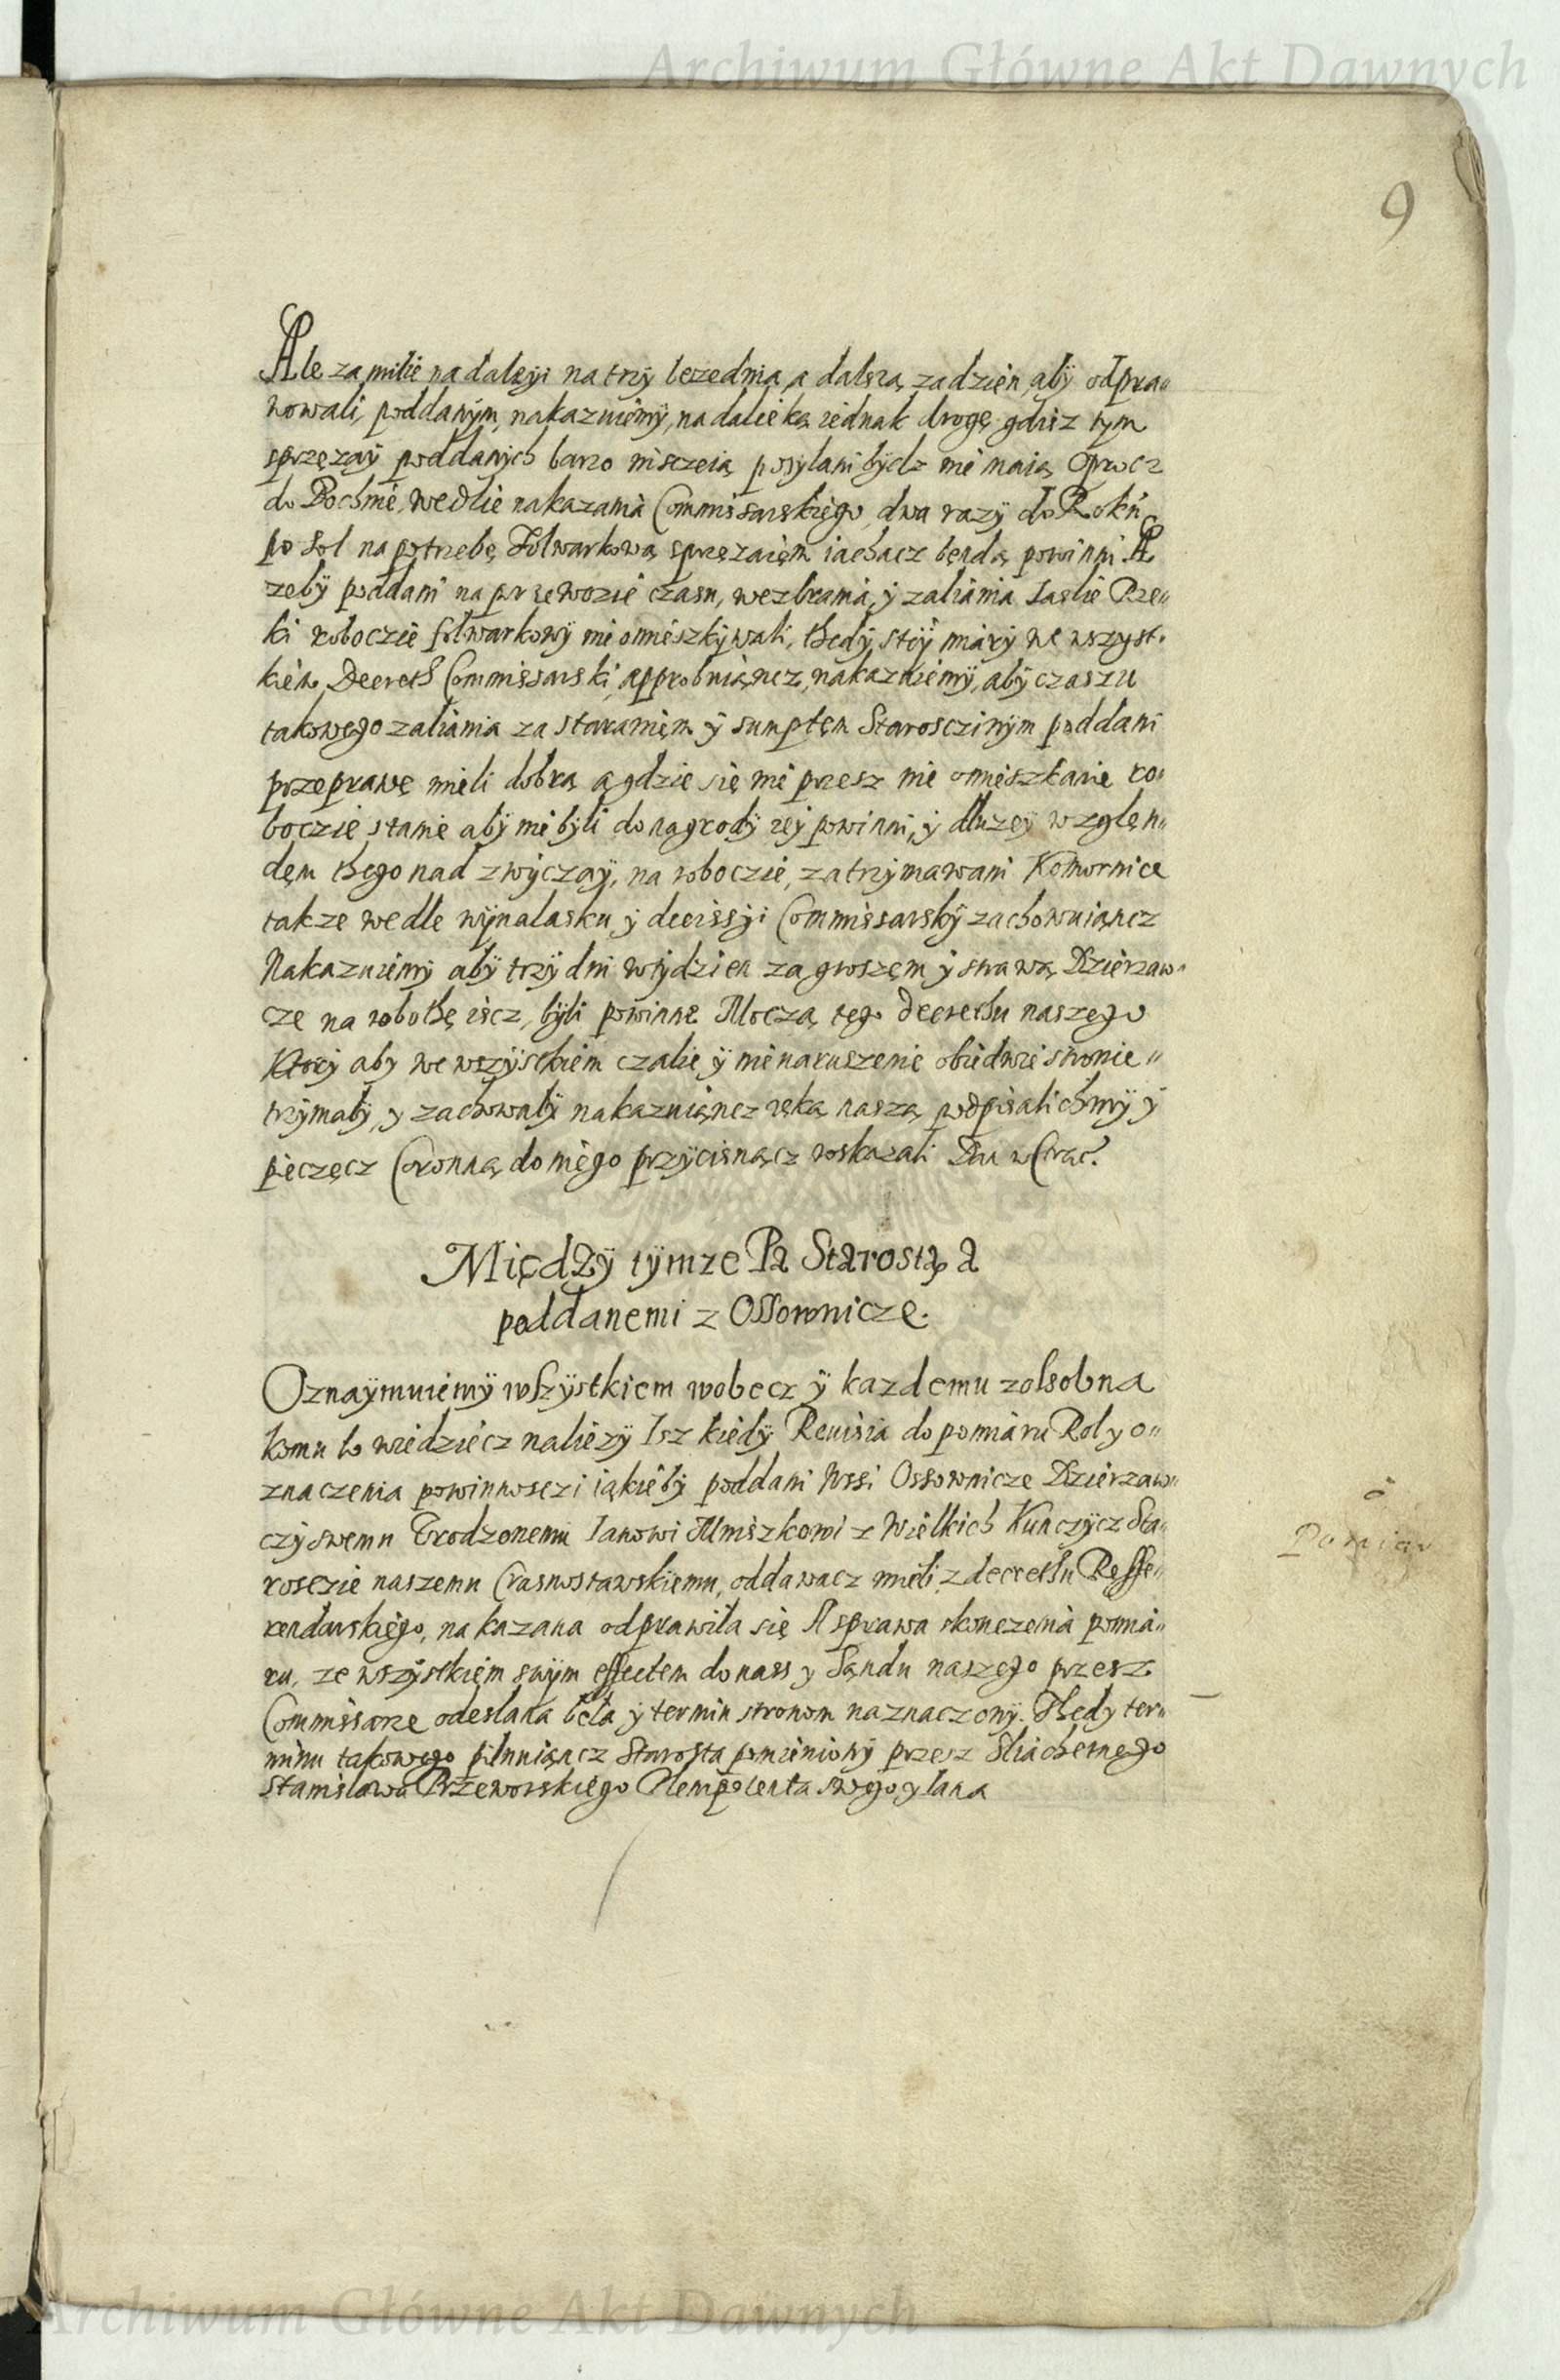 Archiwum Główne Akt Dawnych
9
Ale za milie nadaleyi na trzy bezednia a dalszą zadzien, aby odpra„
wowali, poddanÿm, nakazuiemÿ, na dalieką iednak drogę gdiz tym
sprzęzaÿ poddanÿch barzo nisczeią posÿlani bÿdz nie maią oprocz
do Bochnie, wedlie nakazania Commissarskiego dwa razÿ do Roku
po sol na potrzebę Folwarkową sprzęzaięm iachacz bęndą powinni A
zebÿ poddani na przewozie czasu, wezbrania, ÿ zaliania Iaslie Rze„
ki roboczie folwarkowÿ nie omieszkÿwali, thedÿ, stÿ miarÿ we wszyst„
kiem Decreth Commissarski approbuiąncz, nakazuiemÿ, abÿ czaszu
takowego zaliania za staraniem ÿ sumptęm Starosczinÿm poddani
przeprawę mieli dobrą a gdzie się nie przesz nie omieszkanie ro„
boczie stanie abÿ nie bÿli do nagrodÿ ieÿ powinni, ÿ dluzeÿ wzglęn„
dęm thego nad zwÿczaÿ, na roboczie, zatrzÿmawani Komornice
takze wedle wÿnalasku ÿ decissÿi Commissarskÿ zachowuiąncz
Nakazuiemÿ abÿ trzÿ dni wtÿdzien za groszęm ÿ strawą Dzierzaw„
cze na robothę iścz, bÿli powinne Moczą tego decrethu naszego
Ktorÿ aby we wszÿstkiem czalie ÿ nienaruszenie obiedwie stronie„
trzÿmalÿ, y zachowalÿ nakazuiąncz ręką naszą podpisalichmÿ ÿ
pieczęcz Coronną do niego przÿcisnącz roskazali Dan w Crac.
Międzÿ tÿmze Pa Starostą a
poddanemi z Ossownicze.
Oznaÿmuiemÿ wszÿstkiem wobecz ÿ kazdemu zossobna
komu to wiedziecz nalieżÿ Isz kiedÿ Reuisia do pomiaru Rol y o„
znaczenia powinnosczi iąkiebÿ poddani Wssi Ossownicze Dzierzaw„
czÿ swemu Urodzonemu Ianowi Mniszkowi z Wielkich Kunczÿcz Sta„
rosczie naszemu Crasnostawskiemu, oddawacz mieli z decrethu Reffe„
rendarskiego, nakazana odprawila się A sprawa skonczenia pomia„
ru, ze wszÿstkięm swÿm effectem do nass y Sąndu naszego przesz
Commissarze odeslana bela ÿ termin stronom naznaczonÿ. Thedy ter„
minu takowego pilnuiąncz Starosta pomienionÿ przesz Sliachetnego
Stanislawa Przeworskiego Plempotenta swego, y lana
o
Pomiar
Archiwum Główne Akt Dawnych